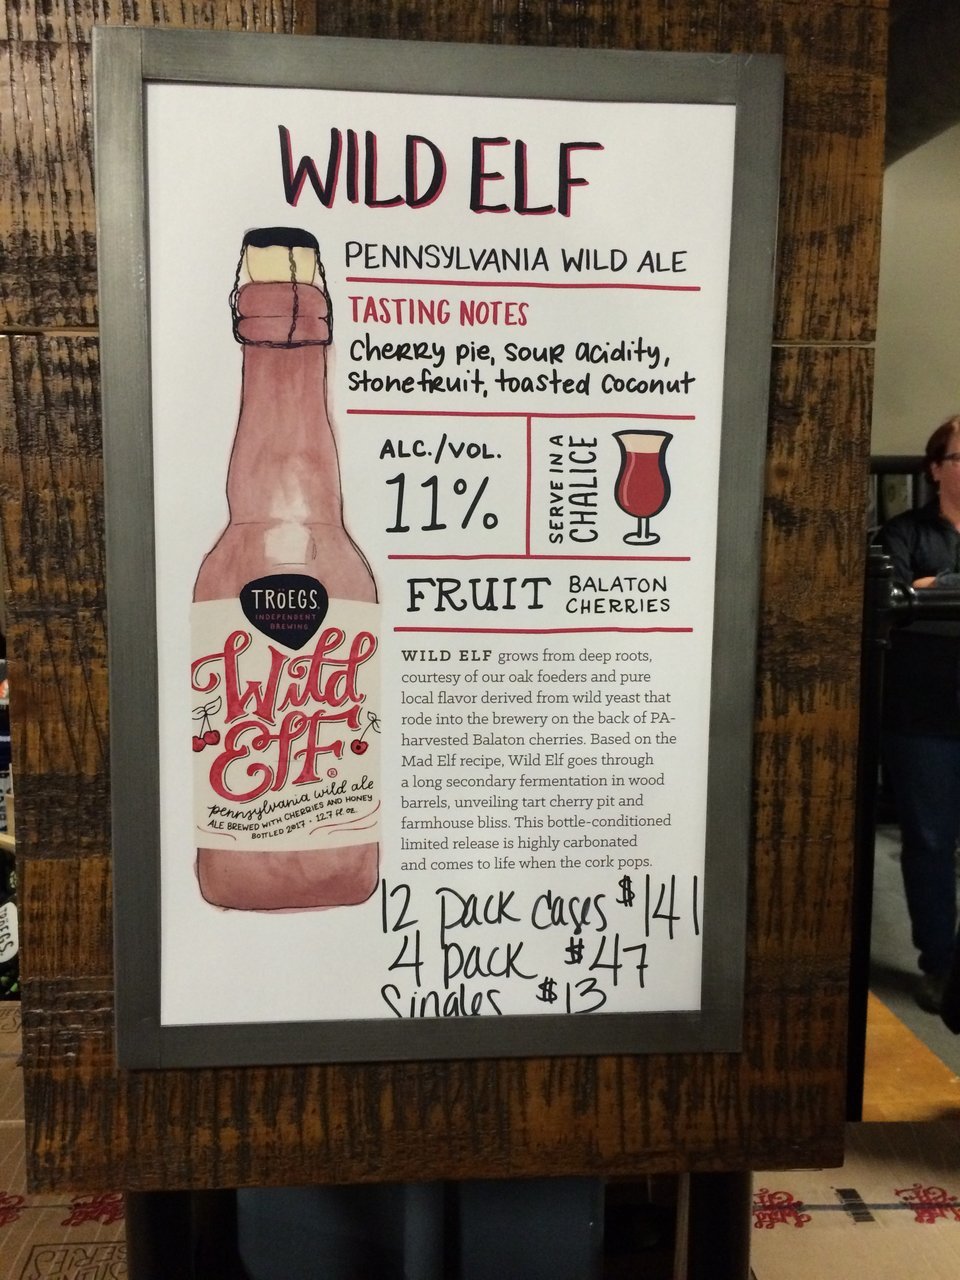 WILD ELF
PENNSYLVANIA WILD ALE
TASTING NOTES
Cherry pie, sour acidity,
stonefruit, toasted coconut
ALC./VOL.
11%
SERVE IN A
CHALICE
FRUIT
BALATON
CHERRIES
WILD ELF grows from deep roots,
courtesy of our oak foeders and pure
local flavor derived from wild yeast that
rode into the brewery on the back of PA-
harvested Balaton cherries. Based on the
Mad Elf recipe, Wild Elf goes through
a long secondary fermentation in wood
barrels, unveiling tart cherry pit and
farmhouse bliss. This bottle-conditioned
limited release is highly carbonated
and comes to life when the cork pops.
12 pack cases $141
4 pack $47
Singles $13
TRöEGS
INDEPENDENT
BREWING
Wild
Elf®
pennsylvania wild ale
ALE BREWED WITH CHERRIES AND HONEY
BOTTLED 2017 • 12.7 fl oz.
TRöEGS
Wild
Elf
SERIES